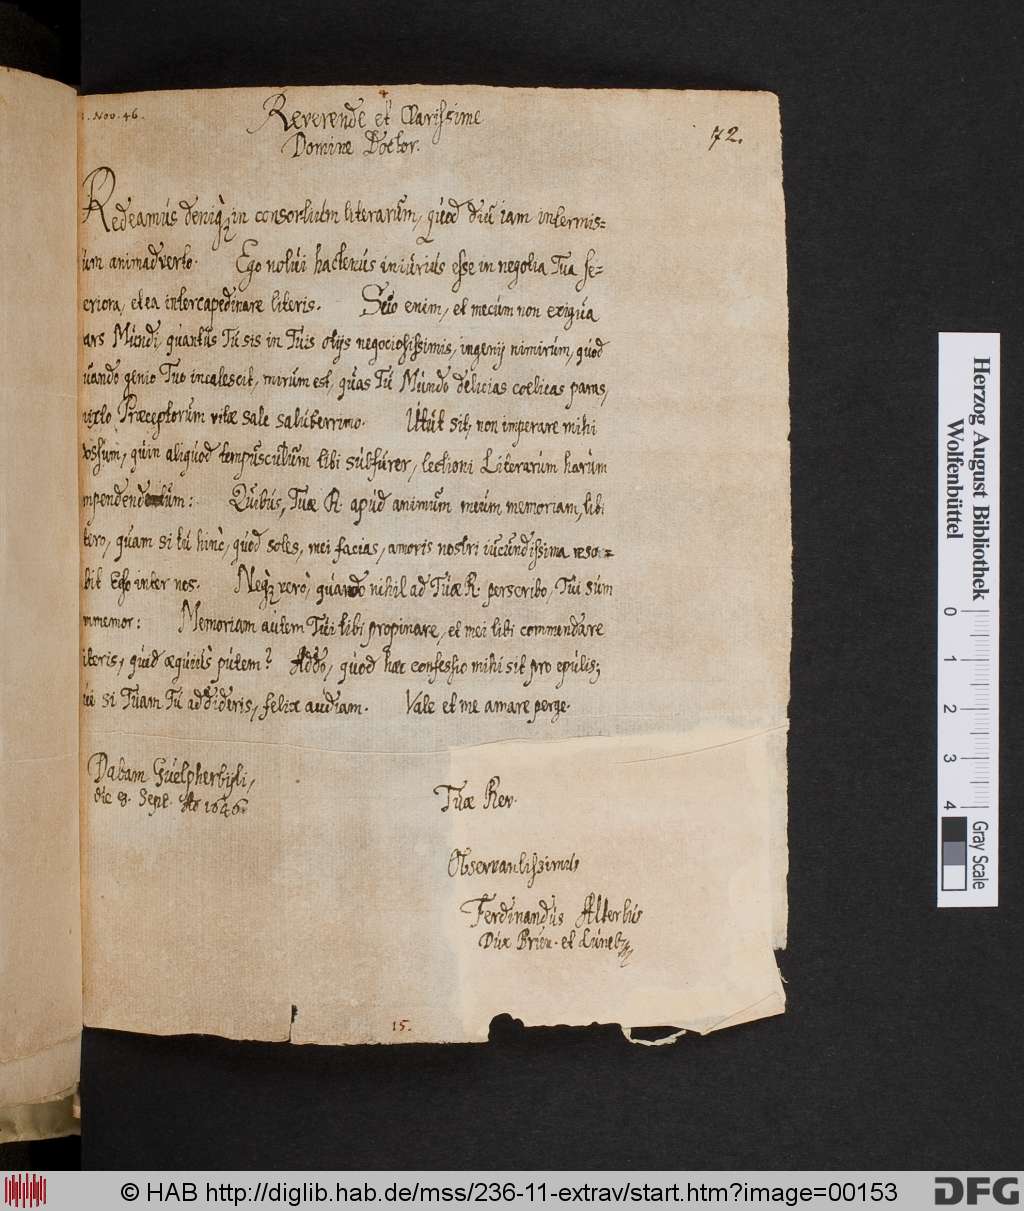 . Nov. 46.
Reverende et Clarissime
Domine Doctor.
72.
Redeamus deniq; in consortium literarum, quod diu iam intermis=
um animadverto. Ego nolui hactenus iniurius esse in negotia Tua se=
eriora, et ea intercapedinare literis. Scio enim, et mecum non exigua
ars Mundi, quantus Tu sis in Tuis otijs negociosissimis, ingenij nimirum, quod
uando genio Tuo incalescit, mirum est, quas Tu Mundo delicias coelicas paras,
ixto Præceptorum vitæ sale saluberrimo. Utut sit, non imperare mihi
ossum, quin aliquod tempusculum tibi subfurer, lectioni Literarum harum
mpendendum: Quibus, Tuæ R. apud animum meum memoriam, tibi
tero, quam si tu hinc, quod soles, mei facias, amoris nostri iucundissima reso=
bit Echo inter nos. Neq; vero, quando nihil ad Tuæ R. perscribo, Tui sum
mmemor: Memoriam autem Tui tibi propinare, et mei tibi commendare
iteris, quid æquius putem? Addo, quod hæc confessio mihi sit pro epulis;
ui si Tuam Tu addideris, felix audiam. Vale et me amare perge.
Dabam Guelpherbyti,
die 8. Sept. Ao 1646.
Tuæ Rev.
Observantissimus
Ferdinandus Albertus
Dux Brun. et Luneb.
15.
Herzog August Bibliothek
Wolfenbüttel
0 1 2 3 4
Gray Scale
© HAB http://diglib.hab.de/mss/236-11-extrav/start.htm?image=00153
DFG